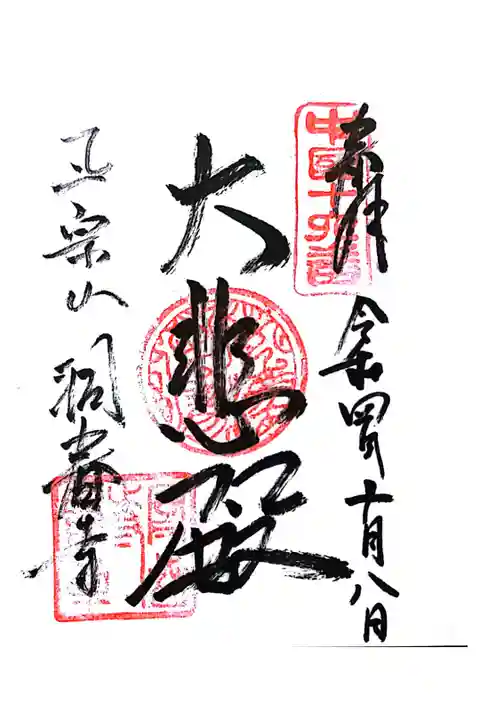 奉拝
令和四年十月八日
中国十九番
大悲殿
正宗山 洞春寺